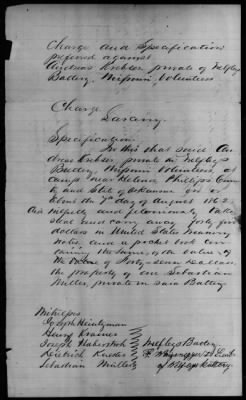 Charge and Specification
preferred against
Andreas Krebser private of
Battery Missouri Volunteers
Charge
Larceny
Specification
In this that said An
dreas Krebser, private in
Battery Missouri Volunteers, at
Camp near Helena Phillips Coun
ty and State of Arkansas on or
about the 7th day of August 186
did willfully and feloniously take
steal and carry away forty five
dollars in United States Treasury
notes and a pocket book con
taining the same, of the value of
Forty-seven Dollars
the property of one Sebastian
Miller, private in said Battery
Witnesses
Joseph Heintzman
Kramer
Joseph Haberstroh
Dietrich
Sebastian Miller
Battery